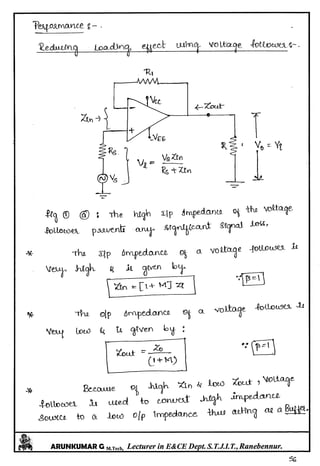 Performance :-.
Reducing Loading effect using voltage follower :-.
R1
VCC
Zin →
← Zout
-
+
-VEE
RS
Vi = VS Zin / RS + Zin
R
V0 = Vi
VS
fig ① ⓐ : The high i/p impedance of the voltage
follower prevents any significant signal loss.
* The i/p impedance of a voltage follower is
very high & is given by.
Zin = [1 + M] Zi
∵ β = 1
* The o/p impedance of a voltage follower is
very low & is given by :
Zout = Zo / (1+M)
∵ β = 1
* Because of high Zin & low Zout, voltage
follower is used to convert high impedance
source to a low o/p impedance thus acting as a Buffer.
ARUNKUMAR G M.Tech, Lecturer in E&CE Dept. S.T.J.I.T., Ranebennur.
56